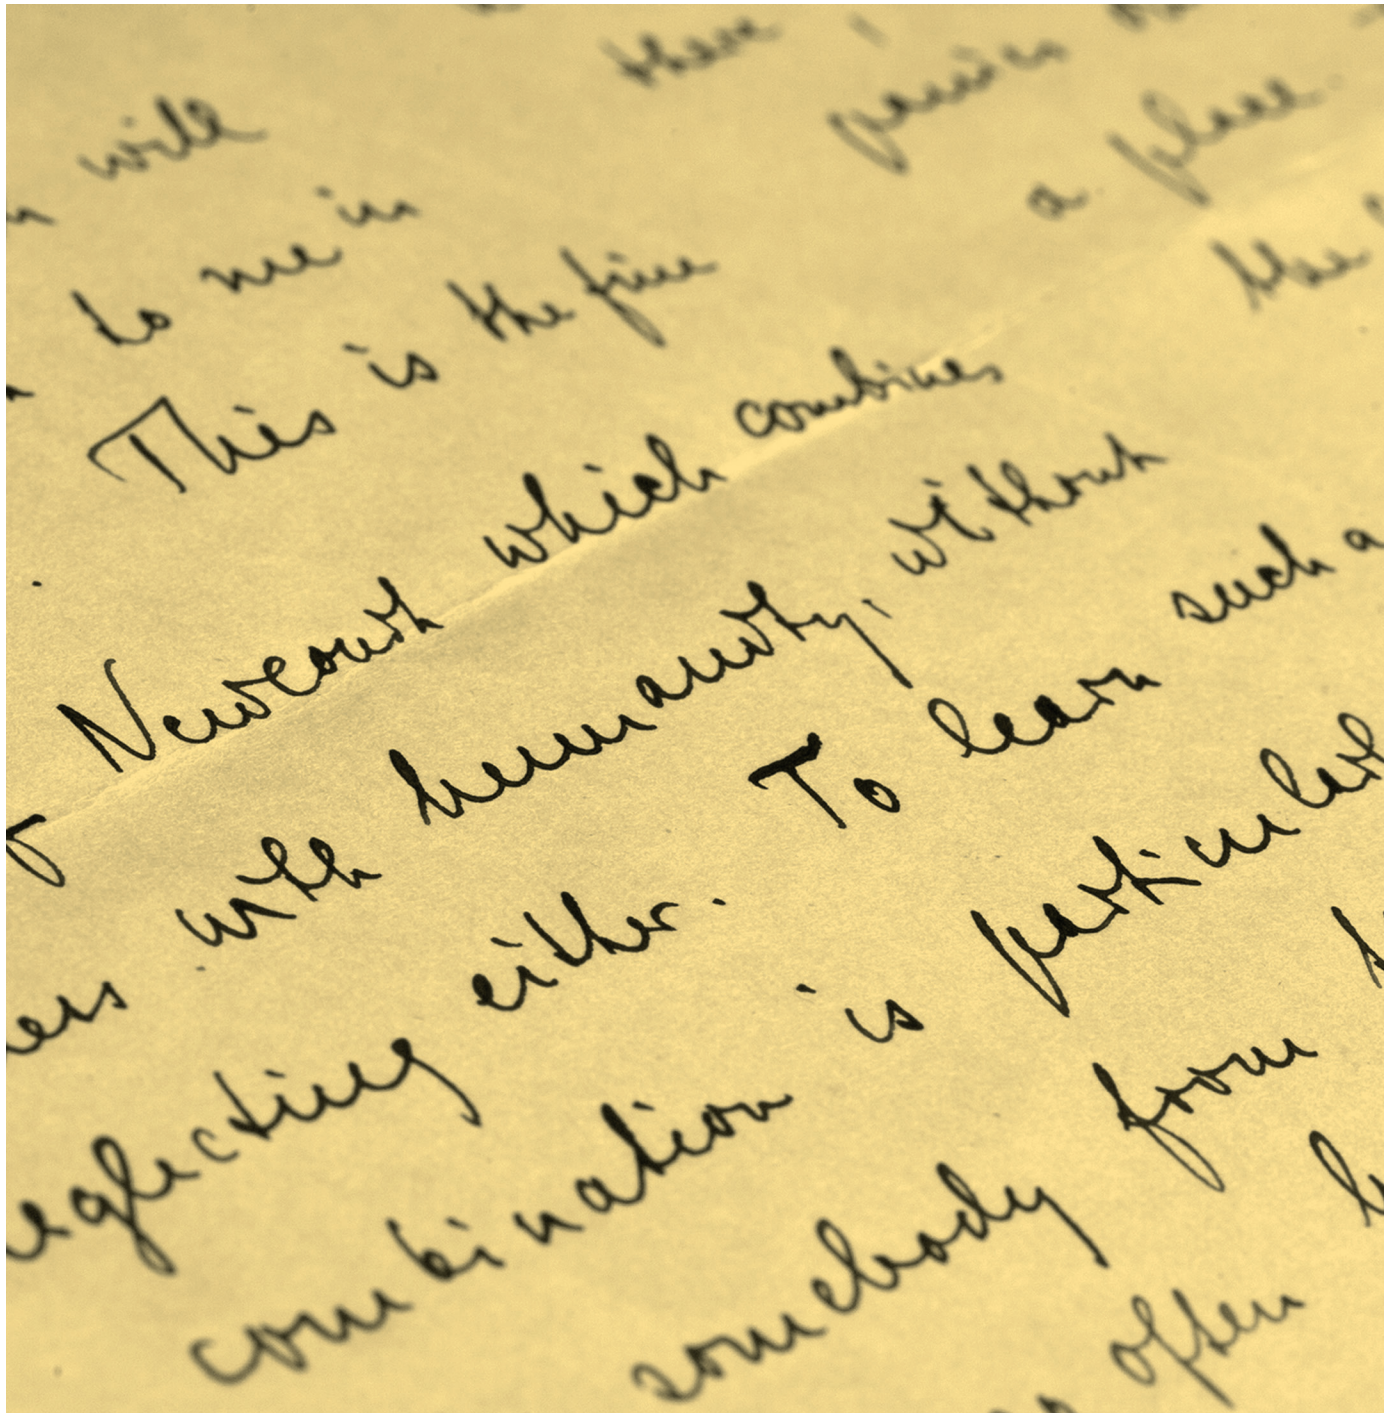 will these
to me in
This is the fine a place
Newcourt which combines the
ess with humanity, without
eglecting either. To learn such a
combination is particularl
somebody from
often